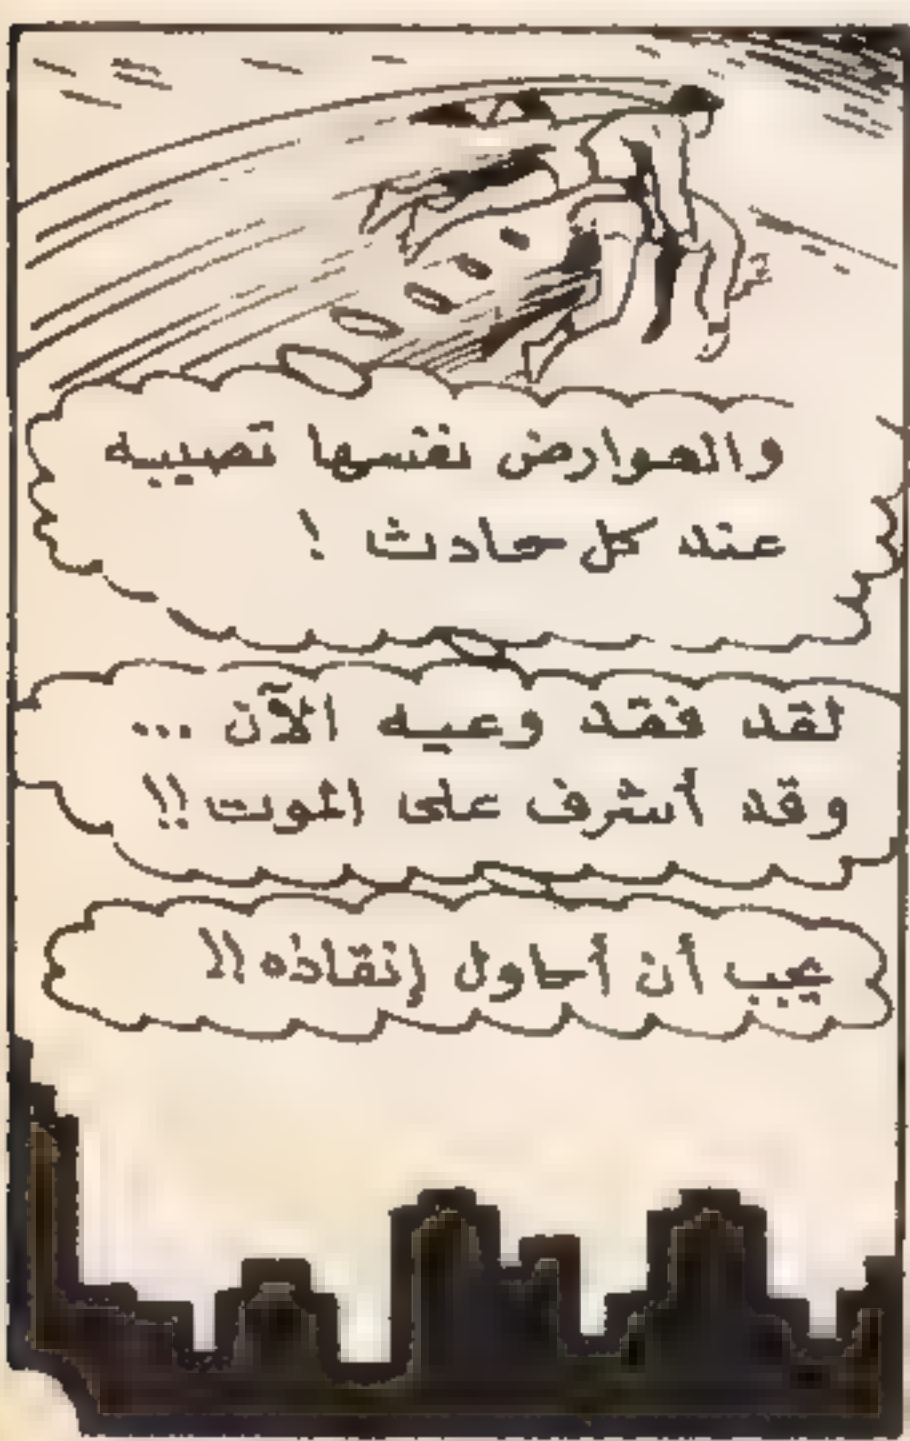 والعوارض نفسها تصيبه
عند كل حادث !
لقد فقد وعيه الآن ...
وقد أشرف على الموت !!
يجب أن أحاول إنقاذه !!